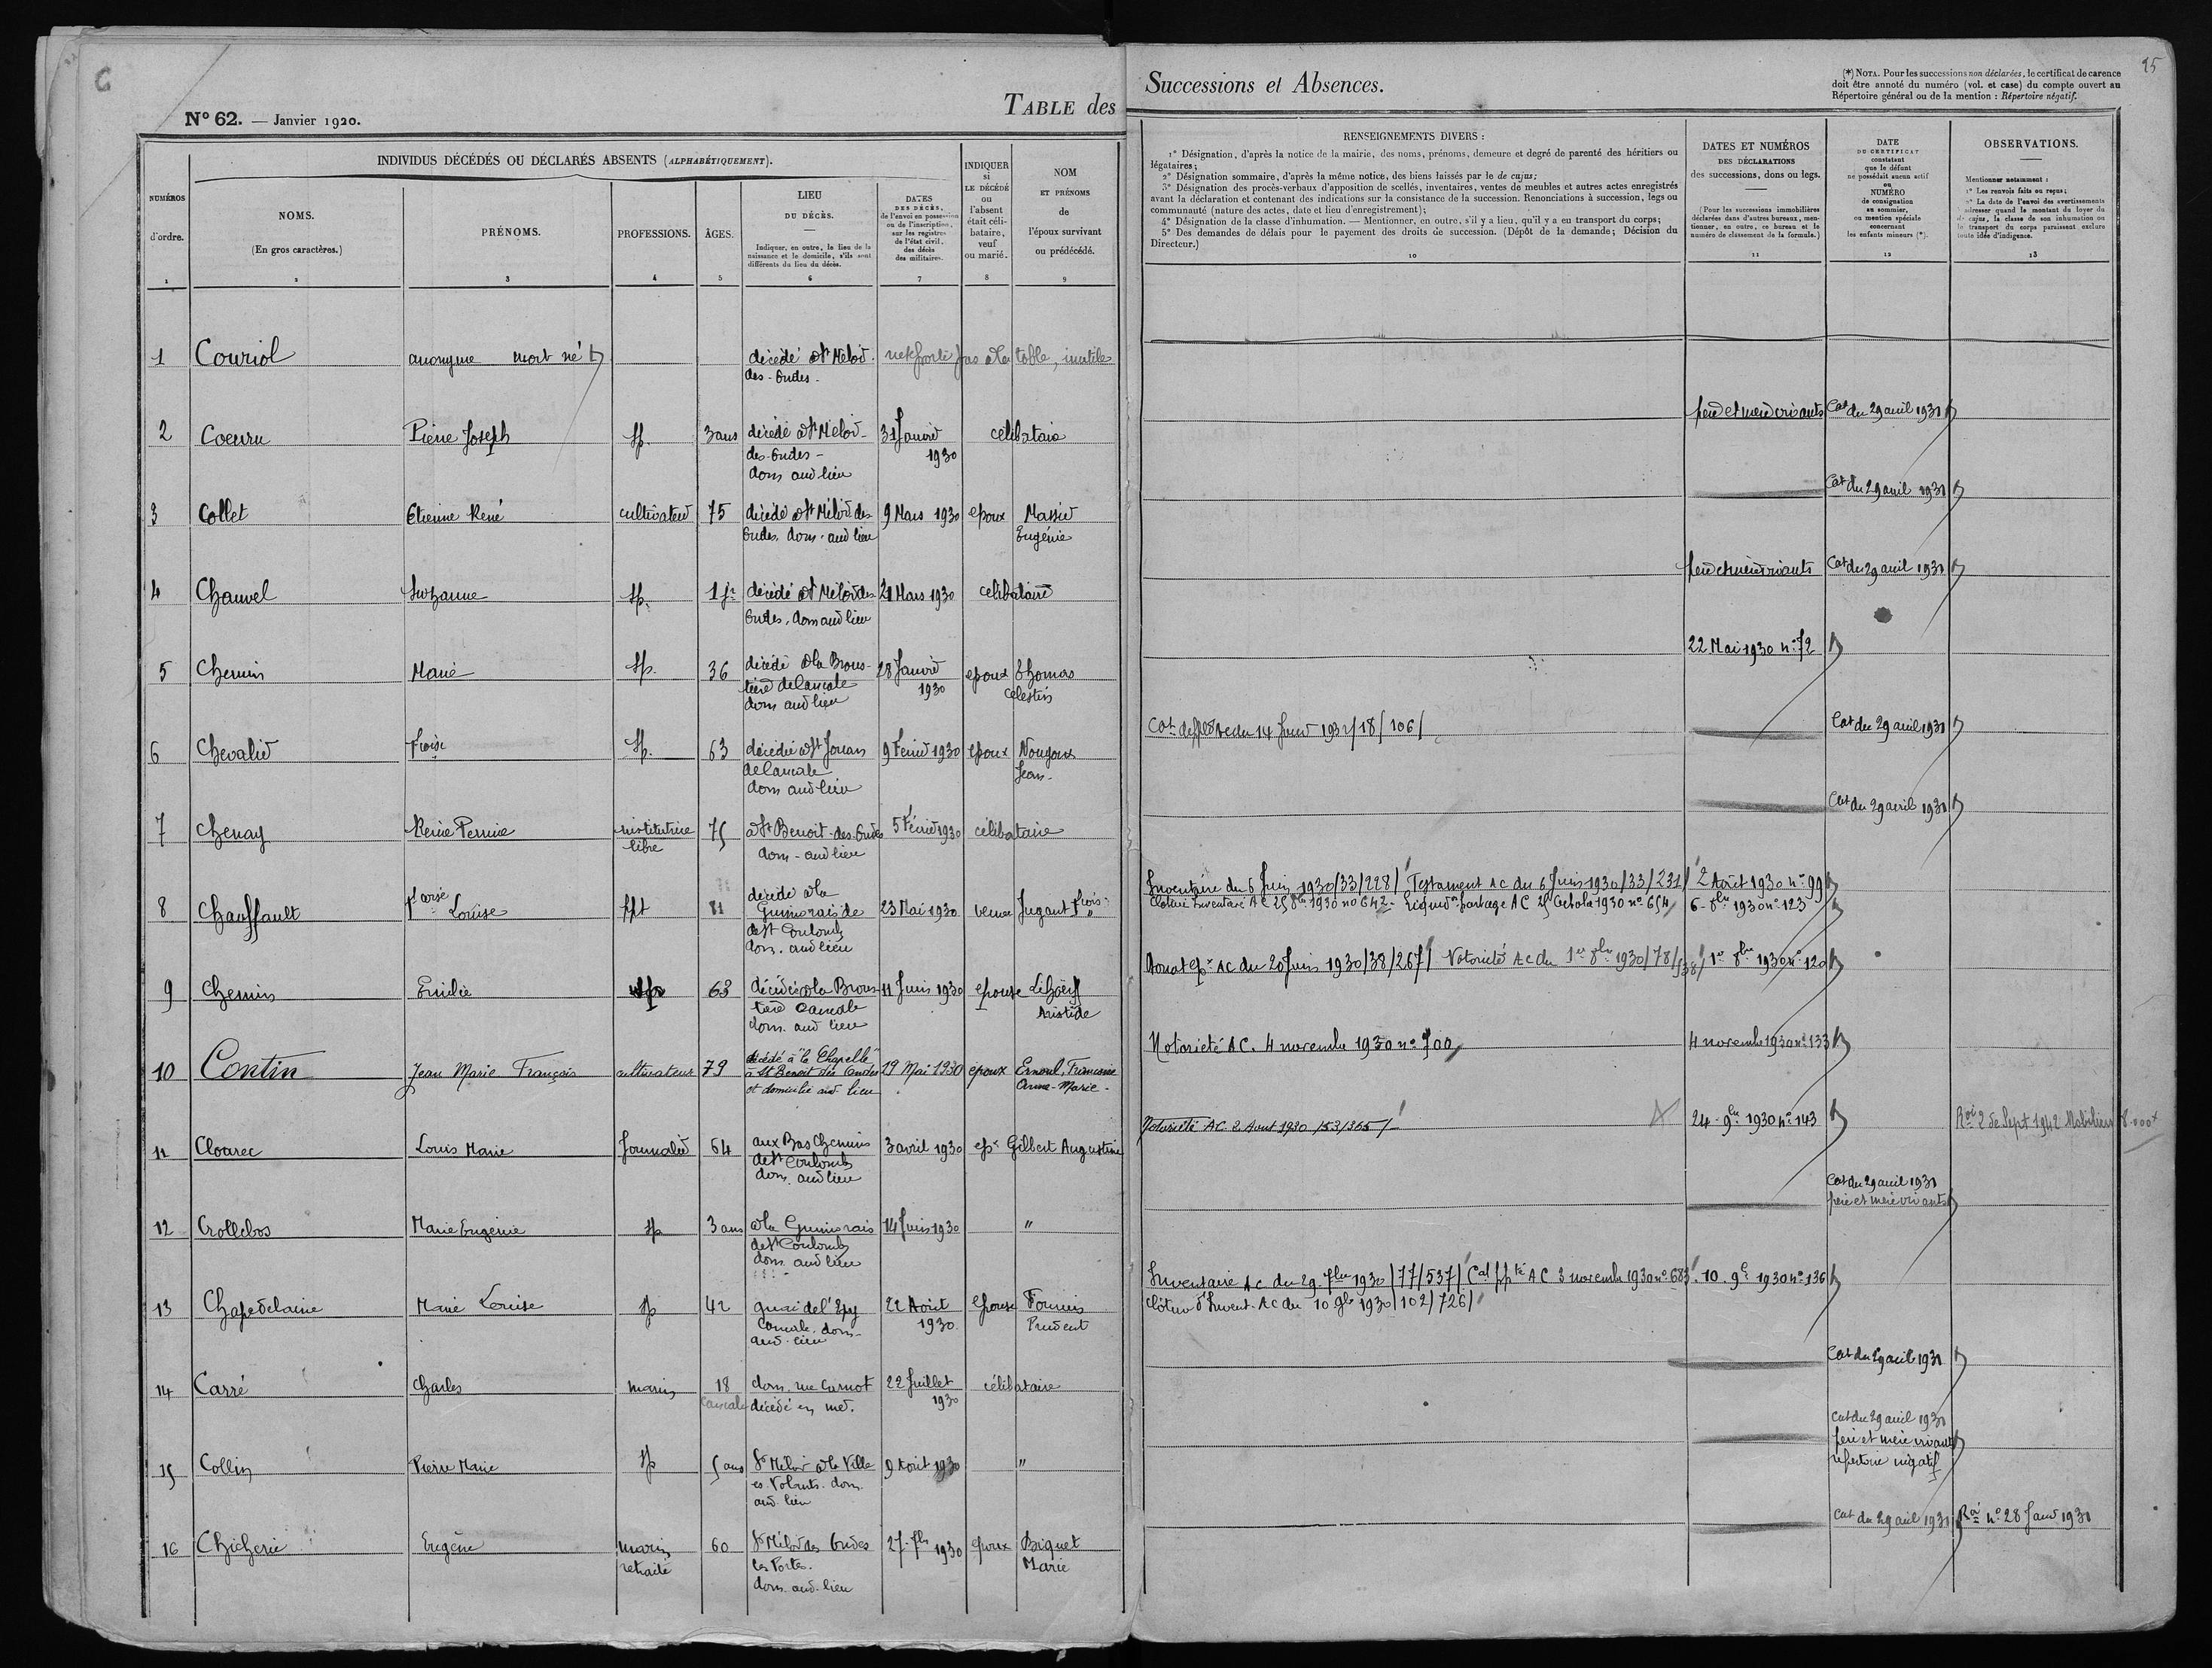 C
25
N° 62. — Janvier 1920.
TABLE des
Successions et Absences.
(*) NOTA. Pour les successions non déclarées, le certificat de carence
doit être annoté du numéro (vol. et case) du compte ouvert au
Répertoire général ou de la mention : Répertoire négatif.
NUMÉROS
d'ordre.
1
INDIVIDUS DÉCÉDÉS OU DÉCLARÉS ABSENTS (ALPHABÉTIQUEMENT).
NOMS.
(En gros caractères.)
2
PRÉNOMS.
3
PROFESSIONS.
4
ÂGES.
5
LIEU
DU DÉCÈS.
Indiquer, en outre, le lieu de la
naissance et le domicile, s'ils sont
différents du lieu du décès.
6
DATES
DES DÉCÈS,
de l'envoi en possession
ou de l'inscription,
sur les registres
de l'état civil,
des décès
des militaires.
7
INDIQUER
si
LE DÉCÉDÉ
ou
l'absent
était céli-
bataire,
veuf
ou marié.
8
NOM
ET PRÉNOMS
de
l'époux survivant
ou prédécédé.
9
RENSEIGNEMENTS DIVERS :
1° Désignation, d'après la notice de la mairie, des noms, prénoms, demeure et degré de parenté des héritiers ou
légataires;
2° Désignation sommaire, d'après la même notice, des biens laissés par le de cujus;
3° Désignation des procès-verbaux d'apposition de scellés, inventaires, ventes de meubles et autres actes enregistrés
avant la déclaration et contenant des indications sur la consistance de la succession. Renonciations à succession, legs ou
communauté (nature des actes, date et lieu d'enregistrement);
4° Désignation de la classe d'inhumation. — Mentionner, en outre, s'il y a lieu, qu'il y a eu transport du corps;
5° Des demandes de délais pour le payement des droits de succession. (Dépôt de la demande; Décision du
Directeur.)
10
DATES ET NUMÉROS
DES DÉCLARATIONS
des successions, dons ou legs.
(Pour les successions immobilières
déclarées dans d'autres bureaux, men-
tionner, en outre, ce bureau et le
numéro de classement de la formule.)
11
DATE
DU CERTIFICAT
constatant
que le défunt
ne possédait aucun actif
ou
NUMÉRO
de consignation
au sommier,
ou mention spéciale
concernant
les enfants mineurs (*).
12
OBSERVATIONS.
Mentionner notamment :
1° Les renvois faits ou reçus;
2° La date de l'envoi des avertissements
à adresser quand le montant du loyer du
de cujus, la classe de son inhumation ou
le transport du corps paraissent exclure
toute idée d'indigence.
13
1 Couriol anonyme mort né décédé à St Méloir pas à la table, inutile
des-Ondes.
père et mère vivants Cat du 29 avril 1931
2 Coeuru Pierre Joseph sp. 3 ans décédé à St Méloir- 31 Janvier célibataire
des-Ondes- 1930
dom aud lieu
Cat du 29 avril 1931
3 Collet Etienne René cultivateur 75 décédé à St Méloir des 9 Mars 1930 epoux Massie
Ondes. dom. aud lieu Eugénie
père et mère vivants Cat du 29 avril 1931
4 Chauvel Suzanne sp. 1 jr décédé à St Méloir des 21 Mars 1930 célibataire
Ondes. dom aud lieu
22 Mai 1930 n° 72
5 Chemin Marie sp. 36 décédé à la Brous- 28 Janvier epoux Thomas
tière de Cancale 1930 Célestin
dom aud lieu
14 Janv 1932/18/106/ Cat du 29 avril 1931
6 Chevalier Fçoise sp. 63 décédée à St Jouan 9 Février 1930 epoux Nougoux
de Cancale Jean-
dom aud lieu
Cat du 29 avril 1931
7 Chenay Reine Perrine institutrice 75 à St Benoit-des-Ondes 5 Février 1930 célibataire
libre dom-aud lieu
Inventaire du 6 Juin 1930/33/228/ Testament AC du 6 Juin 1930/33/231/ 2 Août 1930 n° 99
Cloture Inventaire AC 25 8bre 1930 n° 642- Liquid° partage AC 25 Octobre 1930 n° 654 6-8bre 1930 n° 123
8 Chauffault Fçoise Louise ppt 81 décédé à la 23 Mai 1930 veuve Jugant Frois
Guimorais de
de St Coulomb
dom. aud lieu
Donat epx AC du 20 Juin 1930/38/267/ Notoriété AC du 1er 8bre 1930/78/538/ 1er 8bre 1930 n° 120
9 Chemin Emilie sp 63 décédée à la Brous- 11 Juin 1930 epouse
tière Cancale Aristide
dom. aud lieu
Notoriété AC. 4 novembre 1930 n° 700 4 novembre 1930 n° 133
10 Contin Jean Marie François cultivateur 79 décédé à "la Chapelle" 19 Mai 1930 epoux Ernoul, Françoise
à St Benoit des Ondes Anne-Marie-
et domicilié aud. lieu
Notoriété AC. 2 Aout 1930/53/365/ 24-9bre 1930 n° 143 2 de Sept 1942 Mobiliers 8.000
11 Clouarec Louis Marie Journalier 64 aux Bas Chemins 3 avril 1930 epx Gilbert Augustine
de St Coulomb
dom. aud lieu
Cat du 29 avril 1931
père et mère vivants
12 Crollebos Marie Eugénie sp 3 ans à la Guimorais 14 Juin 1930 "
de St Coulomb
dom aud lieu
Inventaire AC du 29 7bre 1930/77/537/ AC 3 novembre 1930 n° 683 10. 9bre 1930 n° 136
Clôture d'Invent. AC du 10 9bre 1930/102/726/
13 Chapedelaine Marie Louise sp 42 quai de l'Epy 22 Août Epouse Fournis
Cancale. dom- 1930 Prudent
aud. lieu
Cat du 29 avril 1931
14 Carré Charles marin 18 dom. rue Carnot 22 Juillet célibataire
Cancale décédé en mer. 1930
Cat du 29 avril 1931
père et mère vivants
répertoire négatif
15 Collin Pierre Marie sp 5 ans St Méloir à la Ville 9 Août 1930 "
es Volants. dom.
aud. lieu
Cat du 29 avril 1931 n° 28 Janv 1931
16 Chicherie Eugène marin 60 St Méloir des Ondes 27-7bre 1930 epoux Biguet
retraité les Portes. Marie
dom. aud. lieu